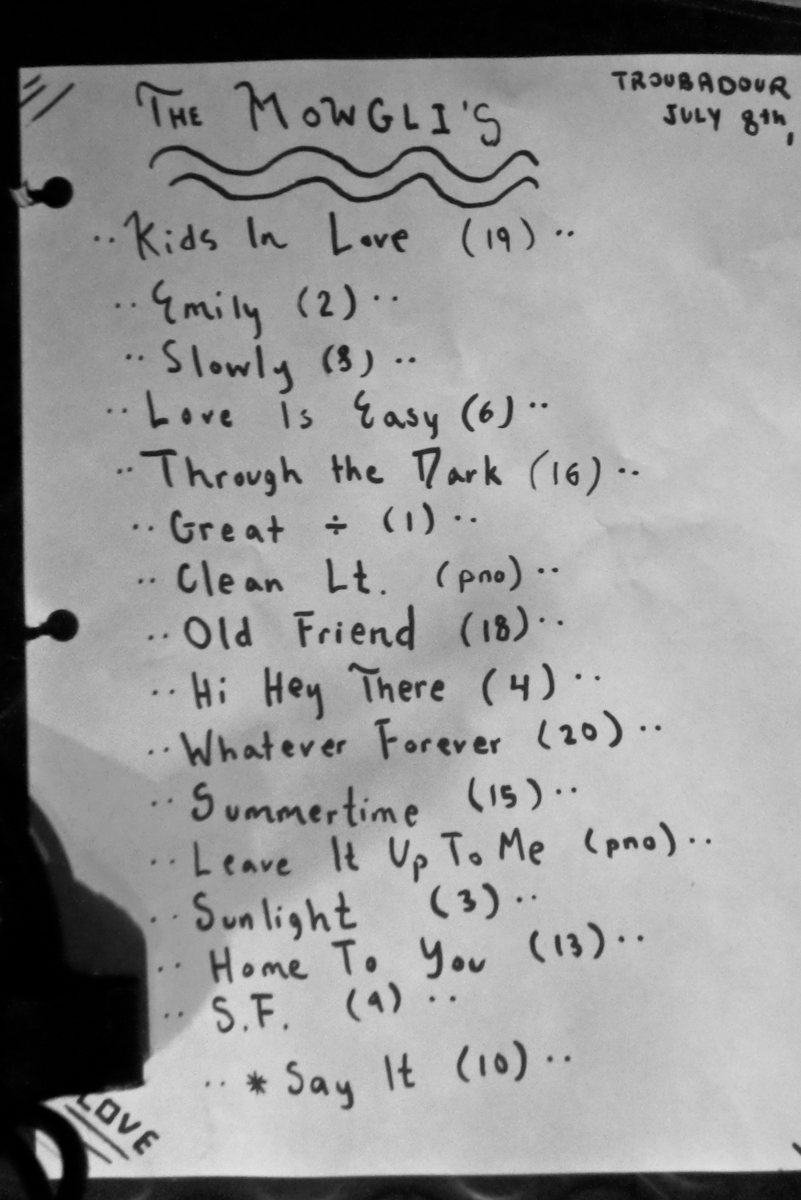 THE MOWGLI'S
TROUBADOUR
JULY 8th,
.. Kids In Love (19) ..
.. Emily (2) ..
.. Slowly (8) ..
.. Love Is Easy (6) ..
.. Through the Dark (16) ..
.. Great ÷ (1) ..
.. Clean Lt. (pno) ..
.. Old Friend (18) ..
.. Hi Hey There (4) ..
.. Whatever Forever (20) ..
.. Summertime (15) ..
.. Leave It Up To Me (pno) ..
.. Sunlight (3) ..
.. Home To You (13) ..
.. S.F. (9) ..
.. * Say It (10) ..
LOVE